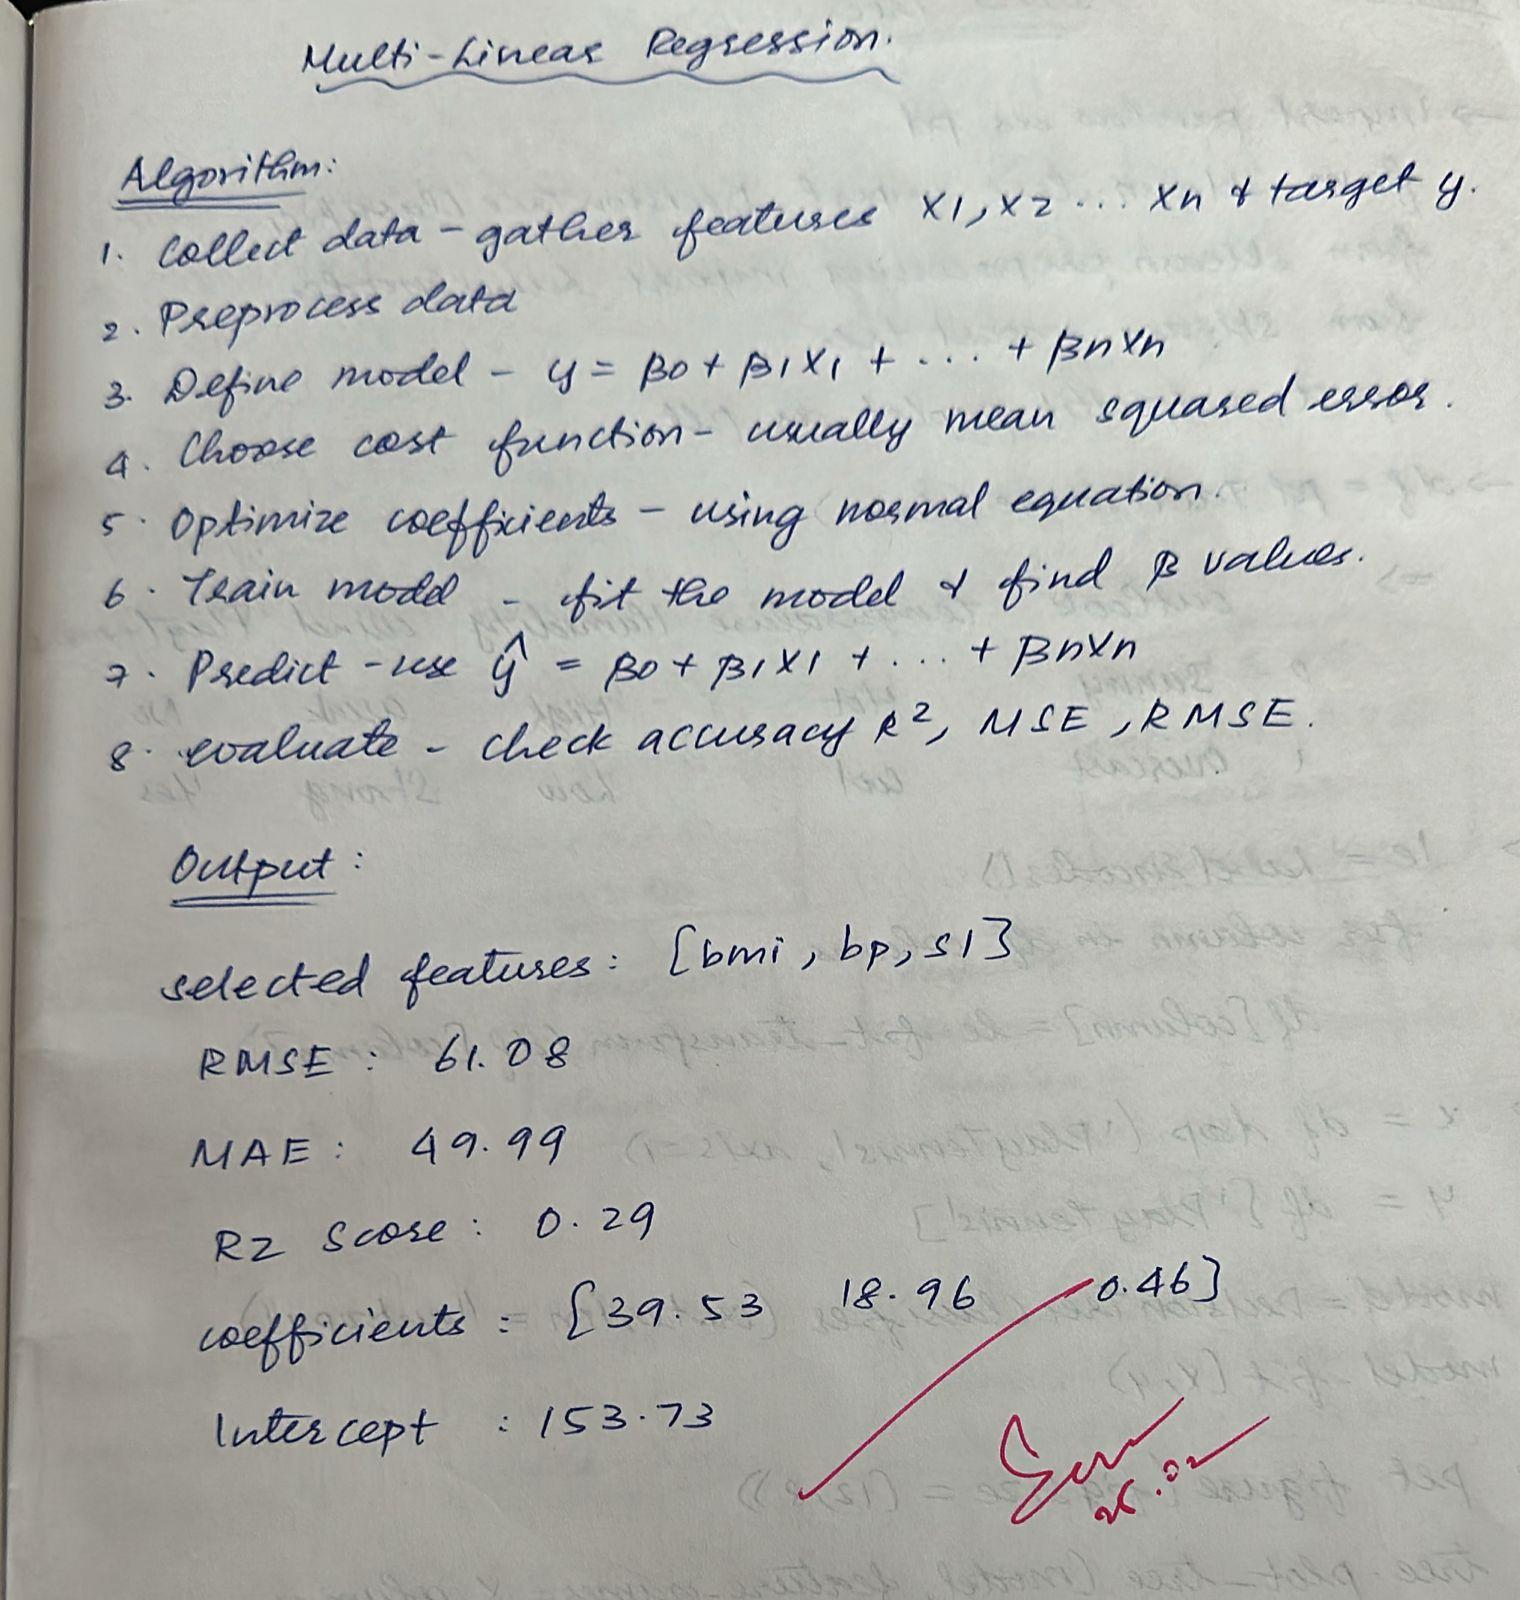 Multi-Linear Regression.
Algorithm:
1. Collect data - gather features X1, X2 ... Xn & target y.
2. Preprocess data
3. Define model - y = β0 + β1X1 + ... + βnXn
4. Choose cost function - usually mean squared error.
5. Optimize coefficients - using normal equation.
6. Train model - fit the model & find β values.
7. Predict - use ŷ = β0 + β1X1 + ... + βnXn
8. evaluate - check accuracy R², MSE, RMSE.
Output:
selected features: [bmi, bp, s1]
RMSE: 61.08
MAE: 49.99
R2 Score: 0.29
coefficients: [39.53 18.96 0.46]
Intercept : 153.73